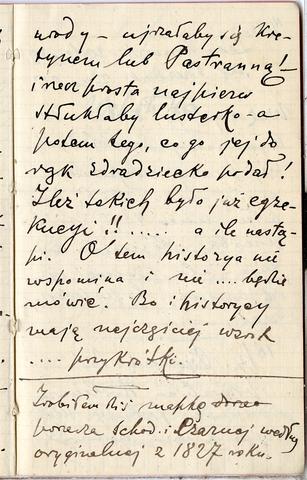 wody – ujrzałaby się Kre-
tynem lub Pastranną! –
i rzecz prosta najpierw
stłukłaby lusterko – a
potem tego, co go jej do
rąk zdradziecko podał!
Ileż takich było już egze-
kucyi!! ..... a ile nastą-
pi. O tem historya nie
wspomina i nie .... będzie
mówić. Bo i historycy
mają najczęściej wzrok
.... przykrótki.
Zrobiłem dziś mapkę
dorzecza Schod. i Czarnej według
oryginalnej z 1827 roku.